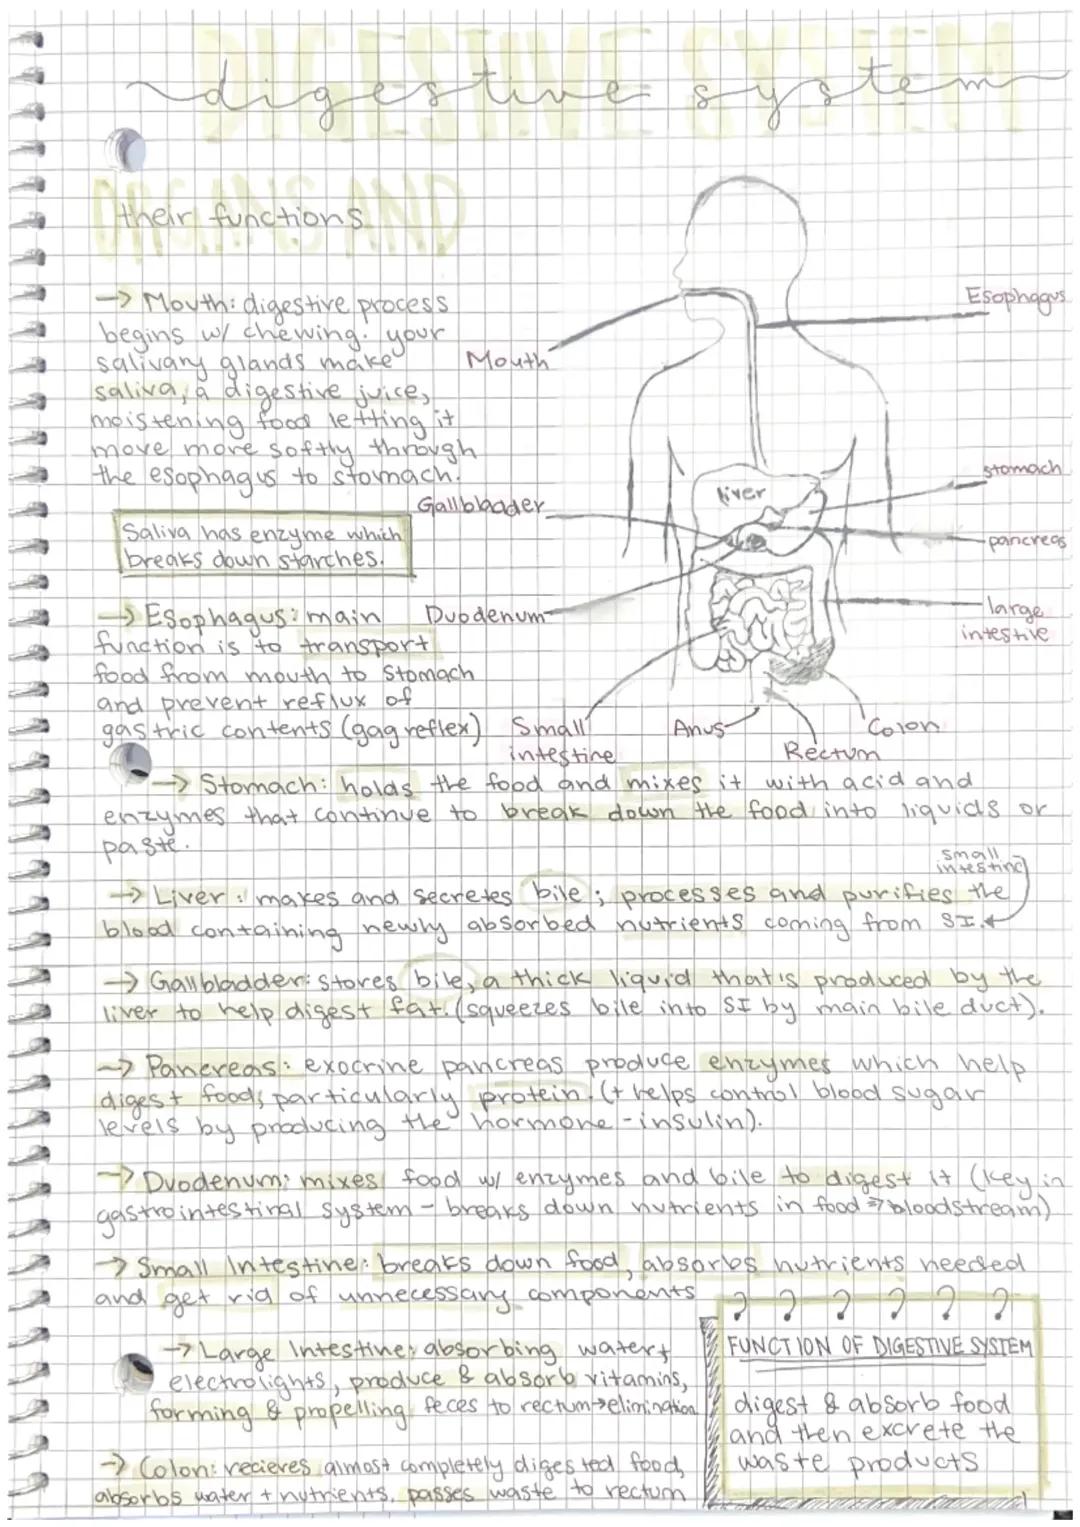 DIGESTIVE SYSTEM
digestive system
ORGANS AND
their functions
→ Mouth: digestive process
begins w/ chewing. your
salivary glands make
saliva, a digestive juice,
moistening food letting it
move more softly through
the esophagus to stomach.
Saliva has enzyme which
breaks down starches.
→ Esophagus: main
function is to transport
food from mouth to stomach
and prevent reflux of
gastric contents (gag reflex)
Mouth
Esophagus
liver
stomach
Gallbladder
pancreas
Duodenum
large
intestive
Small
intestine
Anus
Rectum
Colon
→ Stomach: holds the food and mixes it with acid and
enzymes that continue to break down the food into liquids or
paste.
small
intestine
→ Liver: makes and secretes bile; processes and purifies the
blood containing newly absorbed nutrients coming from SI.
→ Gallbladder: stores bile, a thick liquid that's produced by the
liver to help digest fat. (squeezes bile into SI by main bile duct).
→ Pancreas: exocrine pancreas produce enzymes which help
digest food, particularly protein. (+ helps control blood sugar
levels by producing the hormone - insulin).
→ Duodenum: mixes food w/ enzymes and bile to digest it (key in
gastrointestinal system - breaks down nutrients in food ⇒ bloodstream)
→ Small Intestine: breaks down food, absorbs nutrients needed
and get rid of unnecessary components
→ Large Intestine: absorbing water +
electrolights, produce & absorb vitamins,
forming & propelling feces to rectum→elimination
→ Colon: recieves almost completely digested food,
absorbs water + nutrients, passes waste to rectum
? ? ? ? ? ?
FUNCTION OF DIGESTIVE SYSTEM
digest & absorb food
and then excrete the
waste products